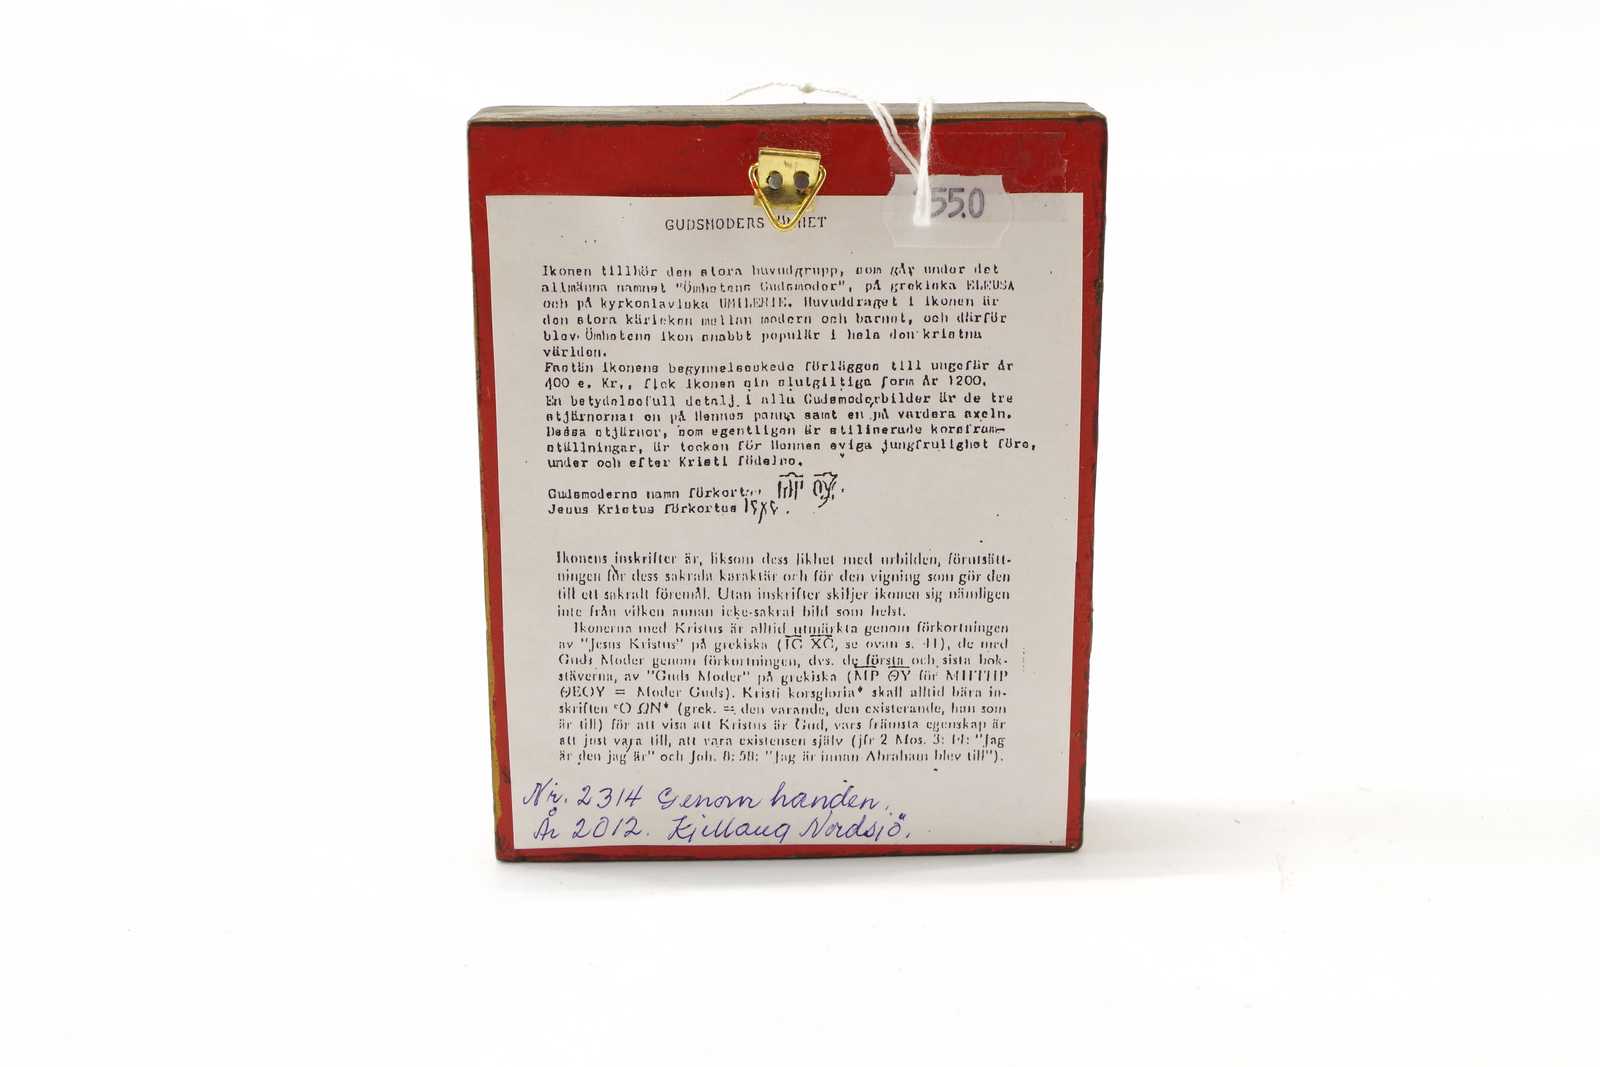 550
GUDSMODERS
Ikonen tillhör den stora huvudgrupp, som går under det
allmänna namnet "Ömhetens Gudsmoder", på grekiska ELEUSA
och på kyrkoslaviska UMILENIE. Huvuddraget i ikonen är
den stora kärleken mellan modern och barnet, och därför
blev Ömhetens ikon snabbt populär i hela den kristna
världen.
Fastän ikonens begynnelseskede förlägges till ungefär år
400 e. Kr., fick ikonen sin slutgiltiga form år 1200.
En betydelsefull detalj i alla Gudsmoderbilder är de tre
stjärnorna: en på Hennes panna samt en på vardera axeln.
Dessa stjärnor, som egentligen är stiliserade korsfram-
ställningar, är tecken för Hennes eviga jungfrulighet före,
under och efter Kristi födelse.
Gudsmoderns namn förkortas ΜΡ ΘΥ.
Jesus Kristus förkortas ICXC.
Ikonens inskrifter är, liksom dess likhet med urbilden, förutsätt-
ningen för dess sakrala karaktär och för den vigning som gör den
till ett sakralt föremål. Utan inskrifter skiljer ikonen sig nämligen
inte från vilken annan icke-sakral bild som helst.
Ikonerna med Kristus är alltid utmärkta genom förkortningen
av "Jesus Kristus" på grekiska (IC XC, se ovan s. 41), de med
Guds Moder genom förkortningen, dvs. de första och sista bok-
stäverna, av "Guds Moder" på grekiska (ΜΡ ΘΥ för ΜΗΤΗΡ
ΘΕΟΥ = Moder Guds). Kristi korsgloria* skall alltid bära in-
skriften ʽΟ ΩΝ* (grek. = den varande, den existerande, han som
är till) för att visa att Kristus är Gud, vars främsta egenskap är
att just vara till, att vara existensen själv (jfr 2 Mos. 3: 14: "Jag
är den jag är" och Joh. 8: 58: "Jag är innan Abraham blev till").
Nr. 2314 Genom handen.
År 2012. Kjellaug Nordsjö.